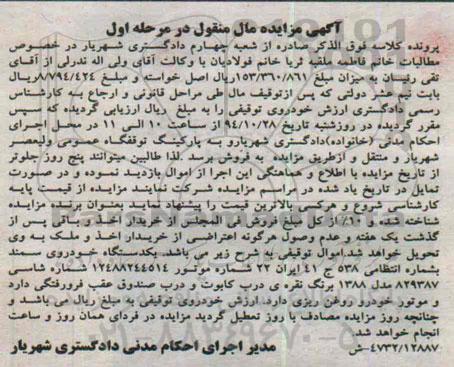 آگهی مزایده مال منقول در مرحله اول
پرونده کلاسه فوق الذکر صادره از شعبه چهارم دادگستری شهریار در خصوص
مطالبات خانم فاطمه ملقبه ثریا خانم فولادیان با وکالت آقای ولی اله ندرلی از آقای
تقی رفیان به میزان مبلغ ۱۵۳/۳۶۰/۸۶۱ریال اصل خواسته و مبلغ ۸۷۹۴/۴۲۴ریال
بابت نیم عشر دولتی که پس ازتوقیف مال طی مراحل قانونی و ارجاع به کارشناس
رسمی دادگستری ارزش خودروی توقیفی را به مبلغ ریال ارزیابی گردیده که سپس
مقرر گردیده در روزشنبه تاریخ ۹۴/۱۰/۲۸ از ساعت ۱۰ الی ۱۱ در محل اجرای
احکام مدنی (خانواده)دادگستری شهریارو به پارکینگ توقفگاه عمومی ولیعصر
شهریار و منتقل و ازطریق مزایده به فروش برسد .لذا طالبین میتوانند پنج روز جلوتر
از تاریخ مزایده با اطلاع و هماهنگی این اجرا از اموال بازدید نموده و در صورت
تمایل در تاریخ یاد شده در مراسم مزایده شرکت نمایند مزایده از قیمت پایه
کارشناسی شروع و هرکسی بالاترین قیمت را پیشنهاد نماید بعنوان برنده مزایده
شناخته شده و ۱۰٪ از کل مبلغ فروش فی المجلس از خریدار اخذ و باقی پس از
گذشت یک هفته و عدم وصول هرگونه اعتراضی از خریدار اخذ و ملک به وی
تحویل خواهد شد.اموال توقیفی به شرح زیر می باشد. یکدستگاه خودروی سمند
بشماره انتظامی ۵۳۸ ج ۴۱ ایران ۲۲ شماره موتور ۱۲۴۸۸۲۴۴۵۱۴ شماره شاسی
۸۲۹۳۸۷ مدل ۱۳۸۸ برنگ نقره ی درب کاپوت و درب صندوق عقب فرورفتگی دارد
و موتور خودرو روغن ریزی دارد. ارزش خودروی توقیفی به مبلغ ریال می باشد و
چنانچه روز مزایده مصادف با روز تعطیل گردید مزایده در فردای همان روز و ساعت
انجام خواهد شد.
۴۷۳۲/۱۲۸۸۷-ش مدیر اجرای احکام مدنی دادگستری شهریار